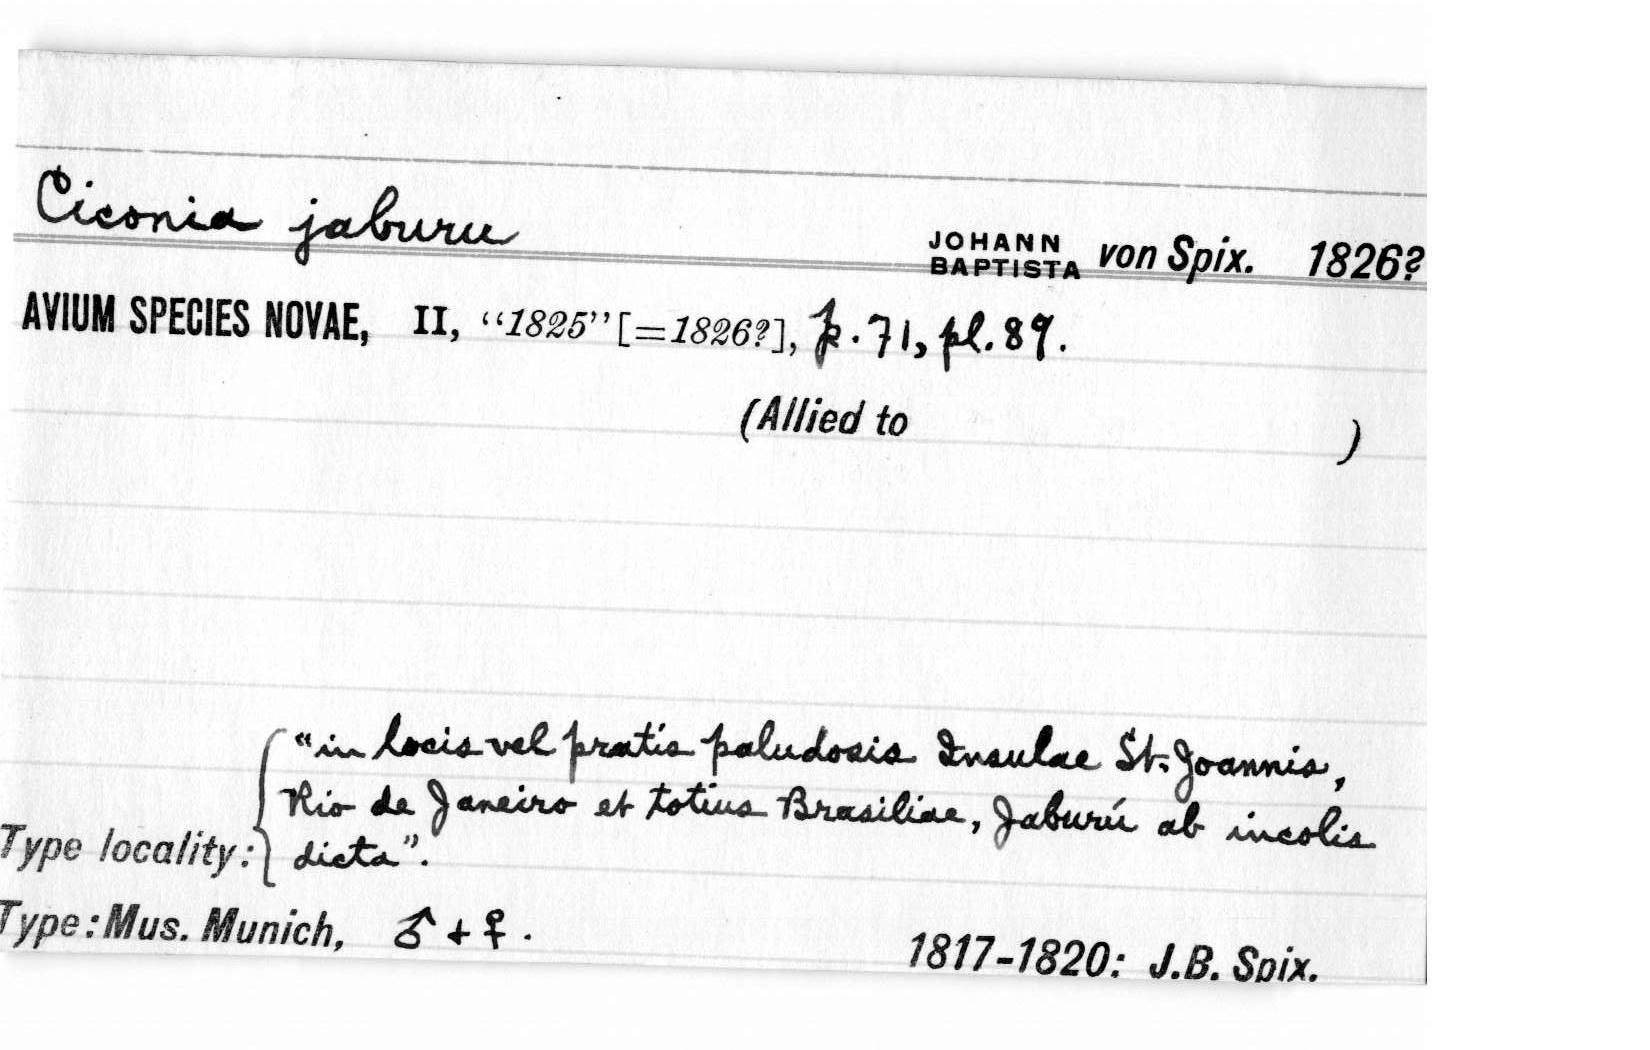 Ciconia jaburu JOHANN BAPTISTA von Spix. 1826?
AVIUM SPECIES NOVAE, II, “1825” [=1826?], p. 71, pl. 89.
(Allied to )
“in locis vel pratis paludosis Insulae St. Joannis,
Rio de Janeiro et totius Brasiliae, Jaburú ab incolis
Type locality: dicta”.
Type: Mus. Munich, ♂ + ♀. 1817-1820: J.B. Spix.